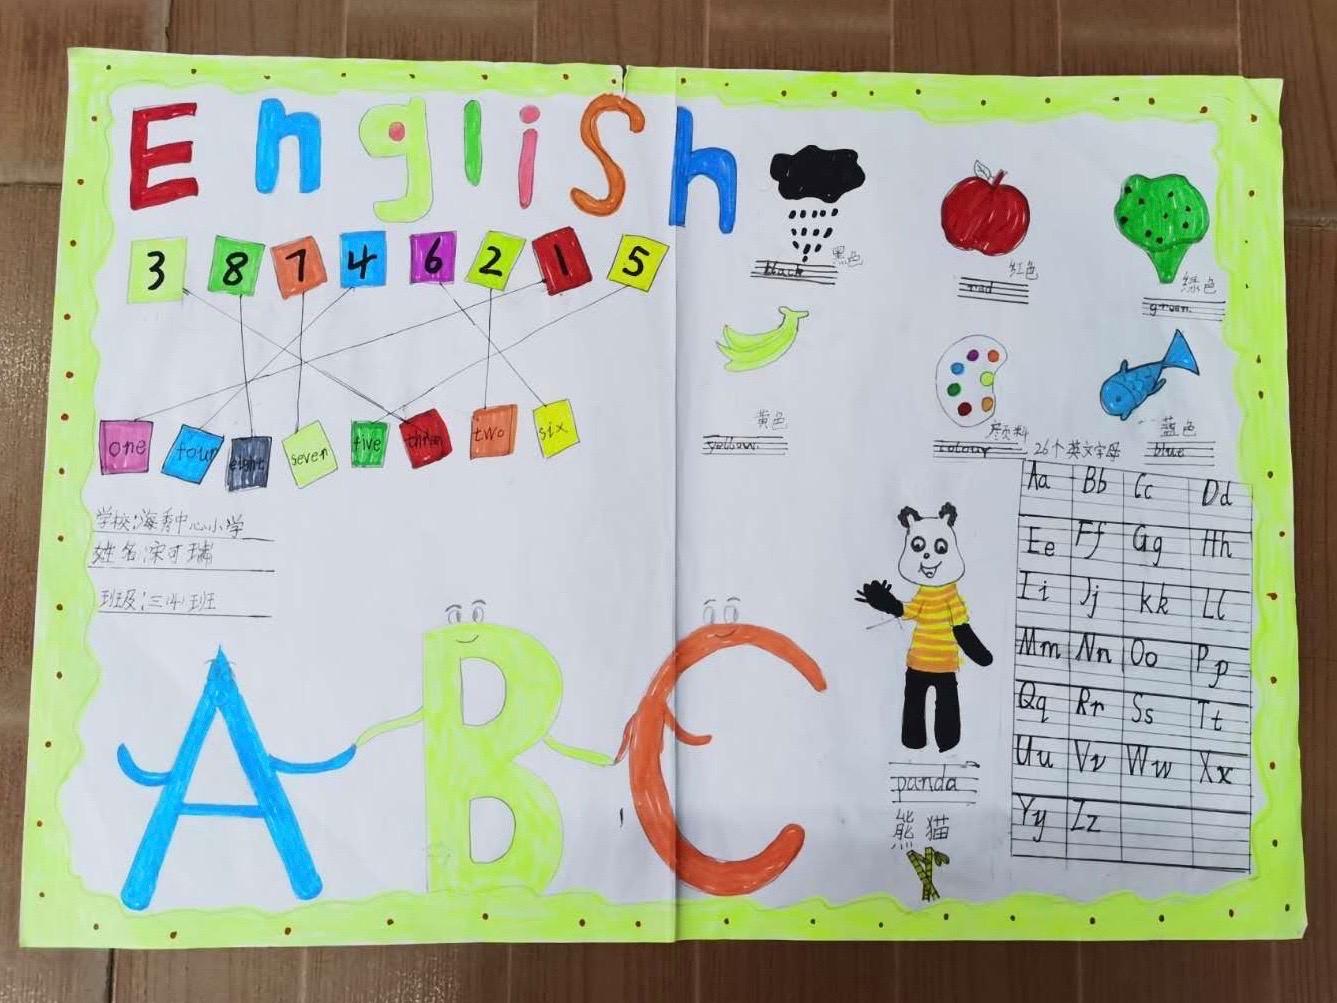 English
3 8 7 4 6 2 1 5
one four eight seven five three two six
学校:海秀中心小学
班及:三(4)班
A B C
黑色
black
红色
red
绿色
green
黄色
yellow
颜料
colour
蓝色
blue
panda
熊猫
26个英文字母
Aa Bb Cc Dd
Ee Ff Gg Hh
Ii Jj Kk Ll
Mm Nn Oo Pp
Qq Rr Ss Tt
Uu Vv Ww Xx
Yy Zz